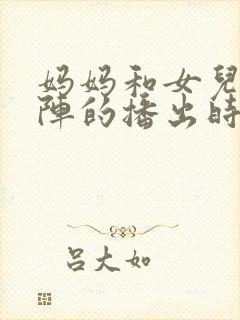 妈妈和女兒
陣的播出時
吕大如